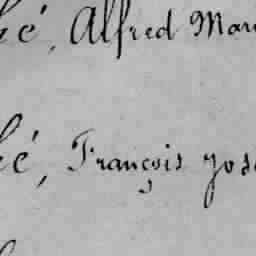 é, Alfred Mar
é, François Jos